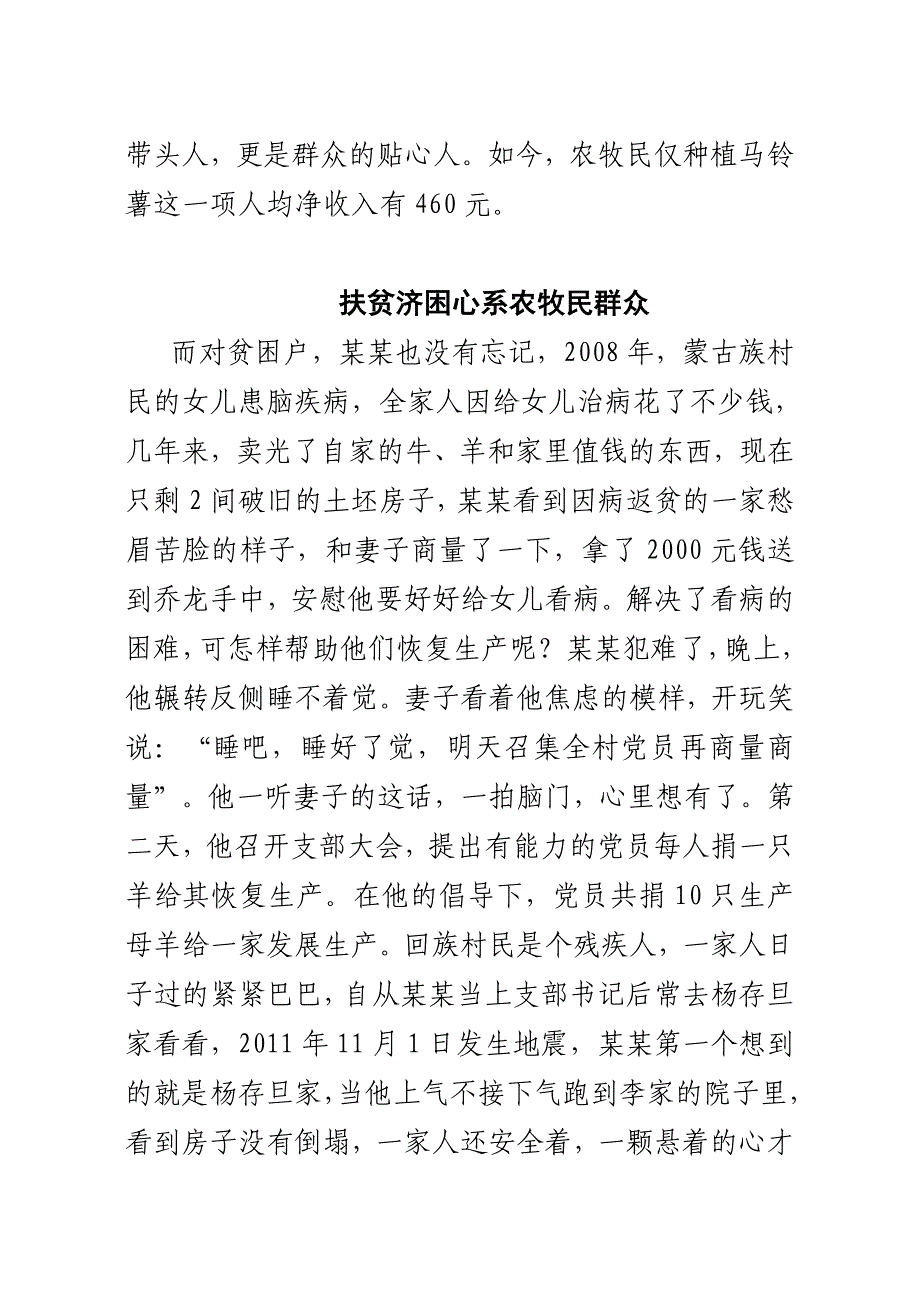 带头人，更是群众的贴心人。如今，农牧民仅种植马铃
薯这一项人均净收入有 460 元。
扶贫济困心系农牧民群众
而对贫困户，某某也没有忘记，2008 年，蒙古族村
民的女儿患脑疾病，全家人因给女儿治病花了不少钱，
几年来，卖光了自家的牛、羊和家里值钱的东西，现在
只剩 2 间破旧的土坯房子，某某看到因病返贫的一家愁
眉苦脸的样子，和妻子商量了一下，拿了 2000 元钱送
到乔龙手中，安慰他要好好给女儿看病。解决了看病的
困难，可怎样帮助他们恢复生产呢？某某犯难了，晚上，
他辗转反侧睡不着觉。妻子看着他焦虑的模样，开玩笑
说：“睡吧，睡好了觉，明天召集全村党员再商量商
量”。他一听妻子的这话，一拍脑门，心里想有了。第
二天，他召开支部大会，提出有能力的党员每人捐一只
羊给其恢复生产。在他的倡导下，党员共捐 10 只生产
母羊给一家发展生产。回族村民是个残疾人，一家人日
子过的紧紧巴巴，自从某某当上支部书记后常去杨存旦
家看看，2011 年 11 月 1 日发生地震，某某第一个想到
的就是杨存旦家，当他上气不接下气跑到李家的院子里，
看到房子没有倒塌，一家人还安全着，一颗悬着的心才